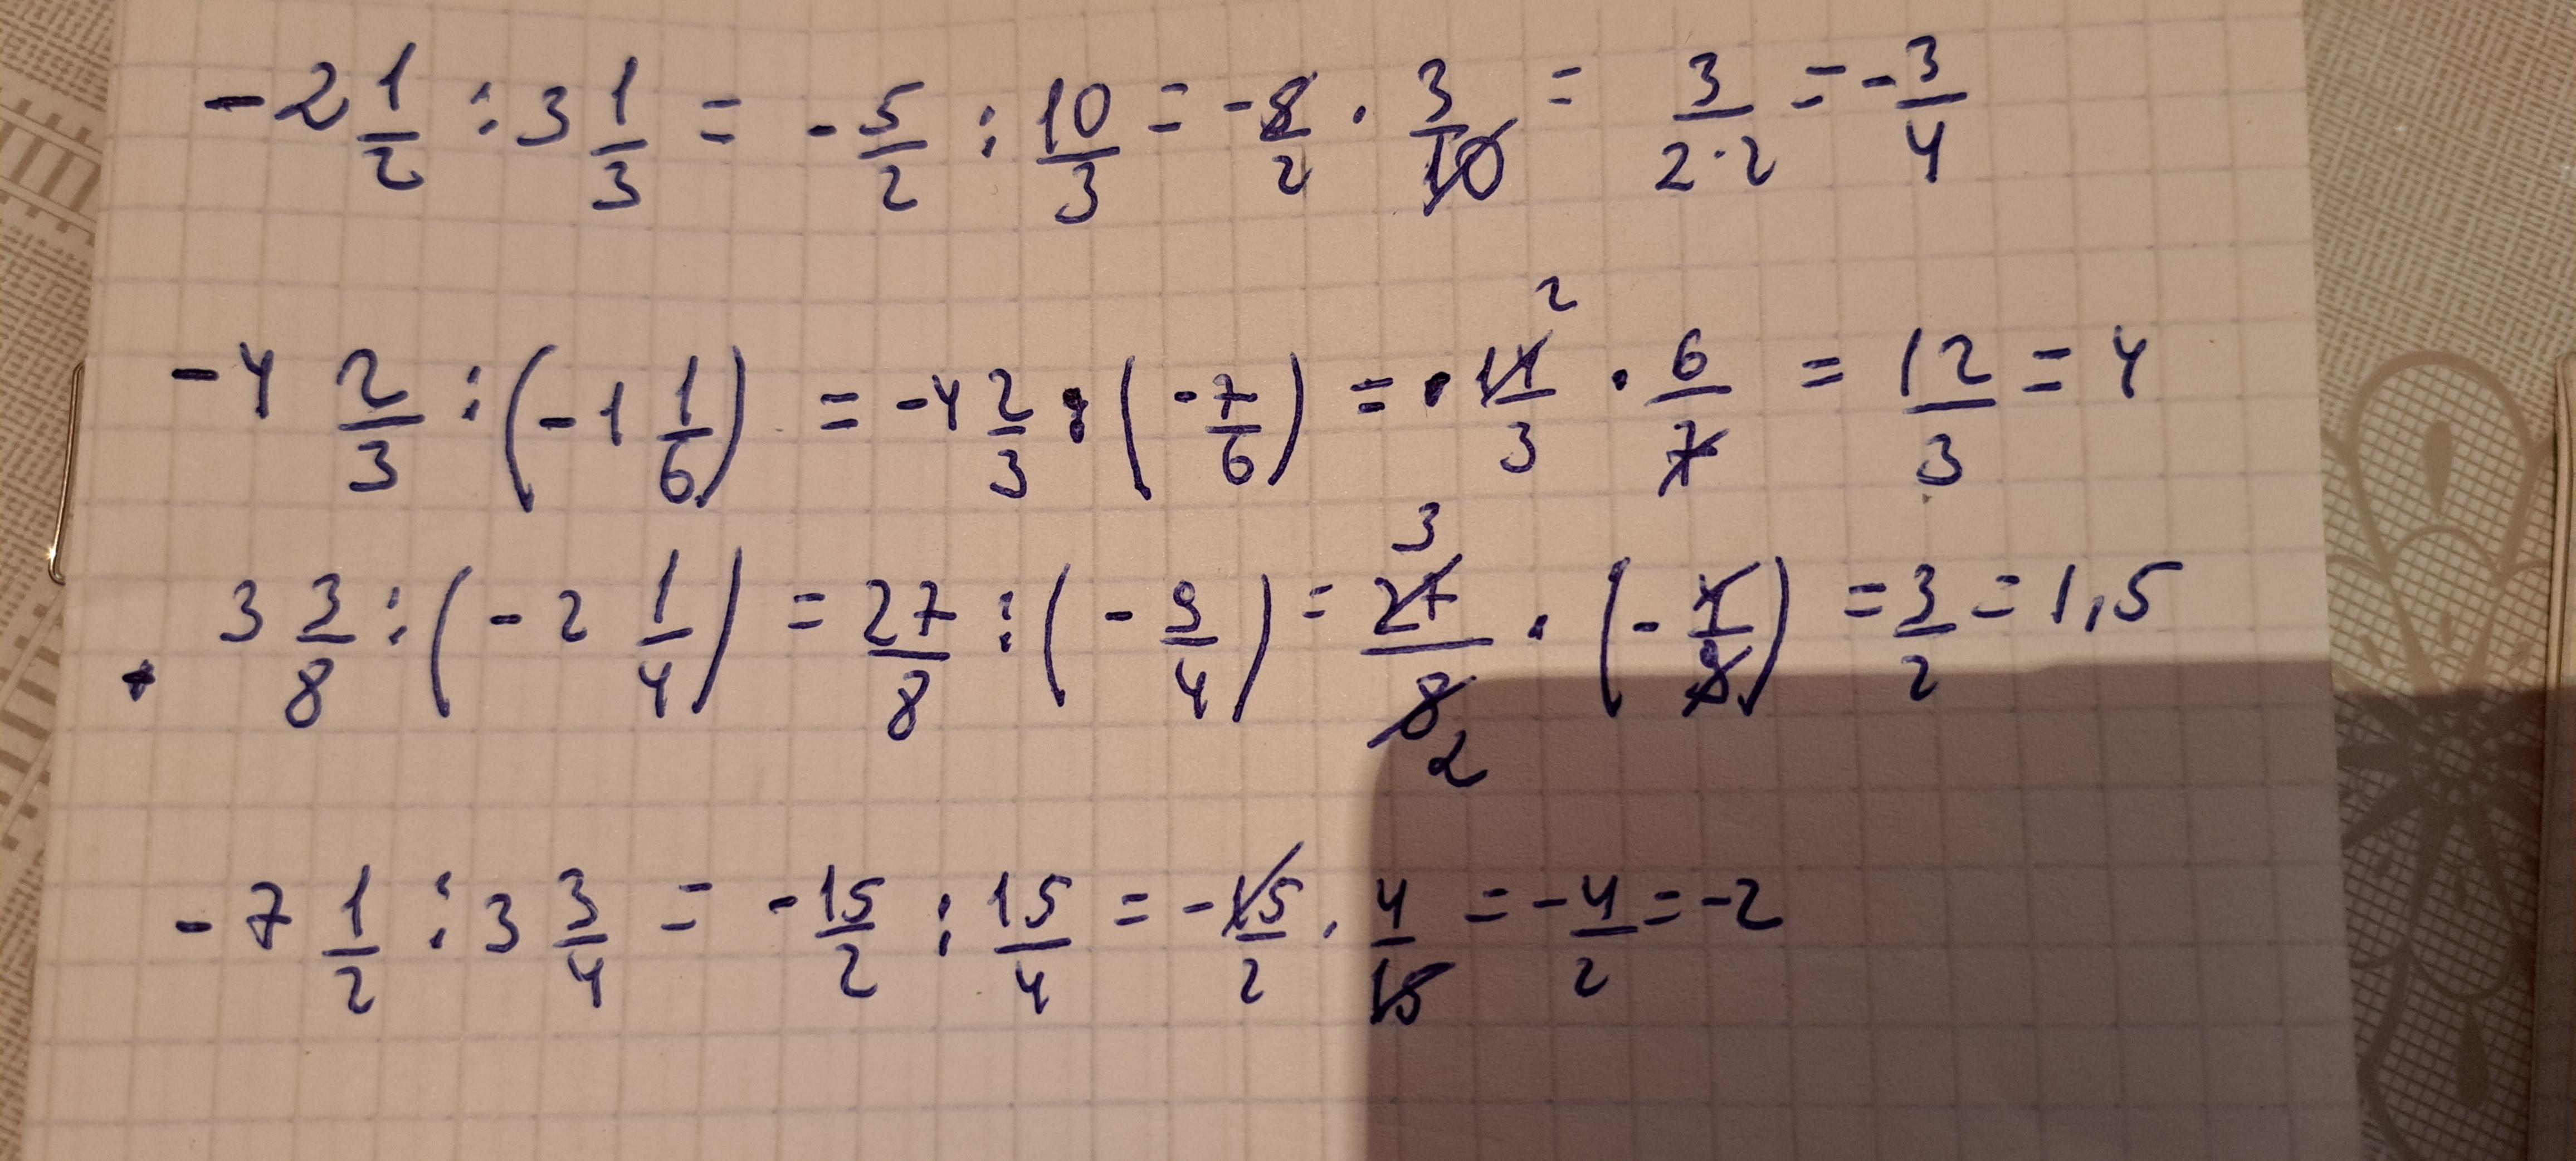 -2 1/2 : 3 1/3 = -5/2 : 10/3 = -5/2 · 3/10 = 3/2·2 = -3/4
-4 2/3 : (-1 1/6) = -4 2/3 : (-7/6) = 14/3 2 · 6/7 = 12/3 = 4
3 3/8 : (-2 1/4) = 27/8 : (-9/4) = 27/8 3 2 · (-4/9) = 3/2 = 1,5
-7 1/2 : 3 3/4 = -15/2 : 15/4 = -15/2 · 4/15 = -4/2 = -2